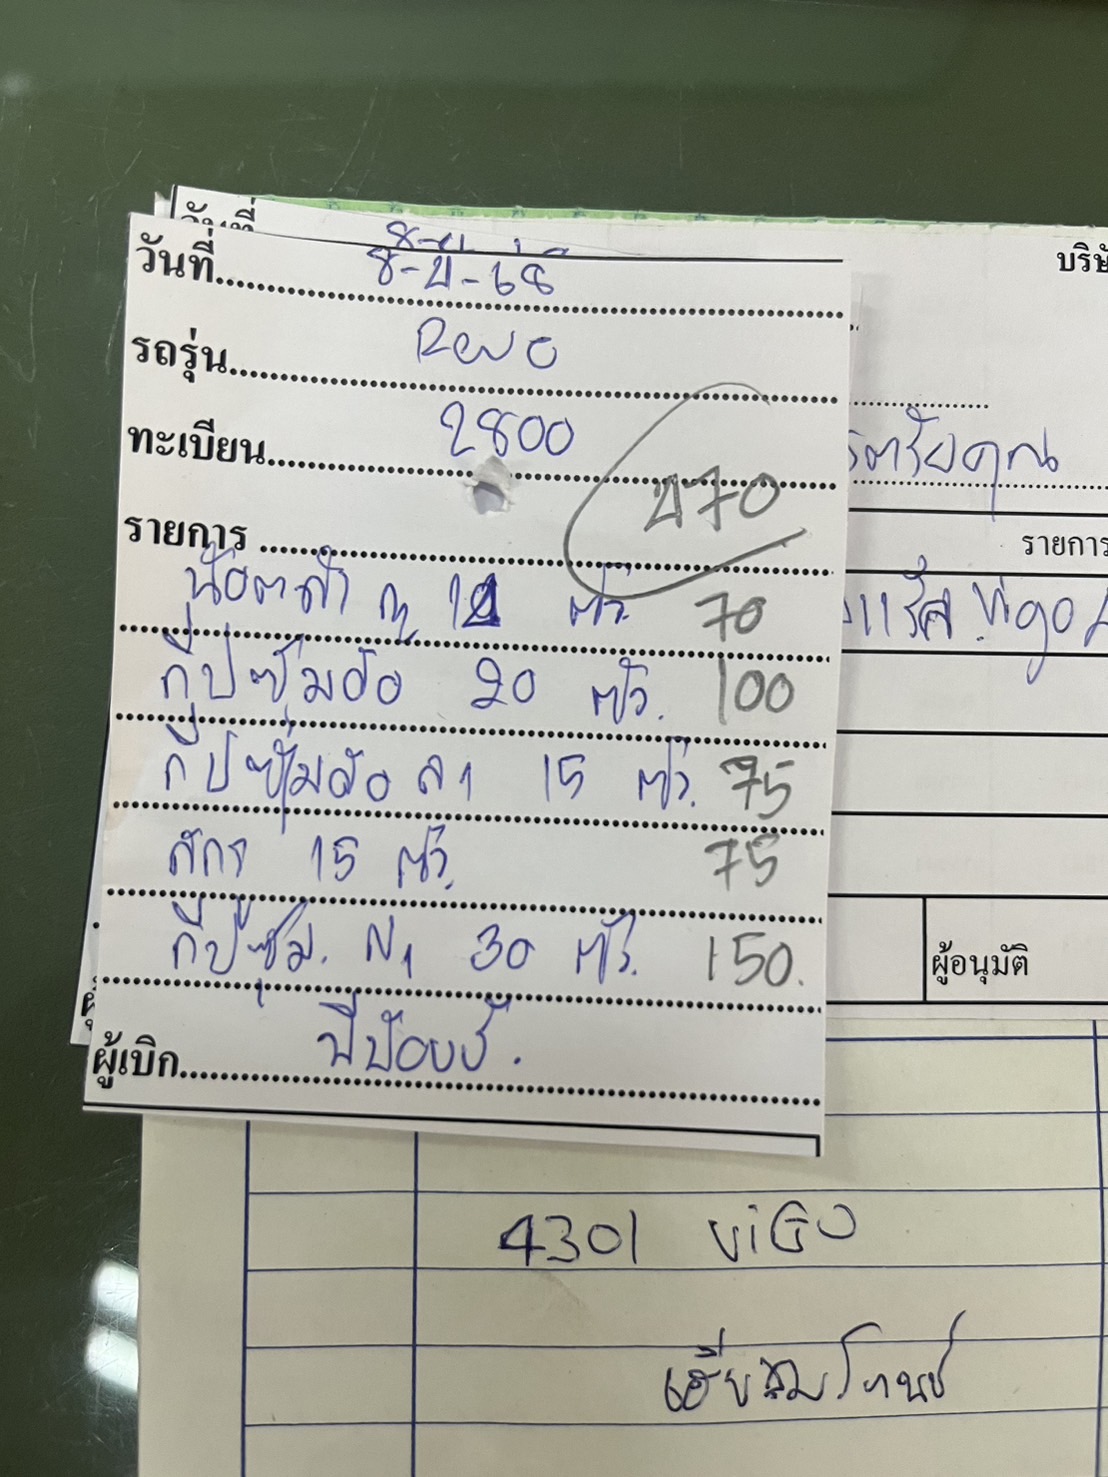 วันที่
8-
วันที่ 8-4-68
รถรุ่น Revo
ทะเบียน 2800
470
รายการ
น๊อตดำ 14 ตัว. 70
กี๊ปซุ้มล้อ 20 ตัว. 100
กี๊ปซุ้มล้อ ล่า 15 ตัว. 75
สกรู 15 ตัว. 75
กี๊ปซุ้ม. 30 ตัว. 150.
ผู้เบิก
บริษั
รตรัยคุณ
รายการ
แร็ค Vigo
ผู้อนุมัติ
4301 ViGO